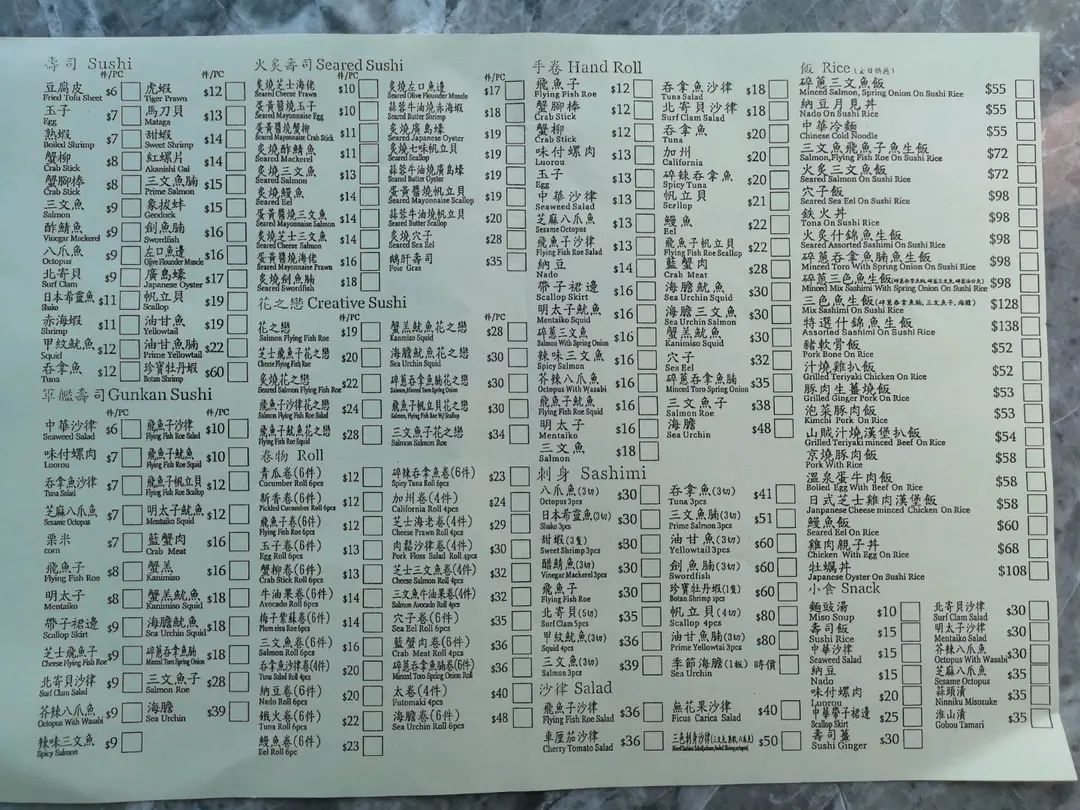 壽司 Sushi
件/PC
件/PC
豆腐皮 $6
Fried Tofu Sheet
玉子 $7
Egg
熟蝦 $7
Boiled Shrimp
蟹柳 $8
Crab Stick
蟹腳棒 $8
Crab Stick
三文魚 $9
Salmon
醋鯖魚 $9
Vinegar Mackerel
八爪魚 $9
Octopus
北寄貝 $9
Surf Clam
日本希靈魚 $11
Shako
赤海蝦 $11
Shrimp
甲紋魷魚 $12
Squid
吞拿魚 $12
Tuna
虎蝦 $12
Tiger Prawn
馬刀貝 $13
Mataga
甜蝦 $14
Sweet Shrimp
紅螺片 $14
Akanishi Gai
三文魚腩 $15
Prime Salmon
象拔蚌 $15
Geoduck
劍魚腩 $16
Swordfish
左口魚邊 $16
Olive Flounder Muscle
廣島蠔 $17
Japanese Oyster
帆立貝 $19
Scallop
油甘魚 $19
Yellowtail
油甘魚腩 $22
Prime Yellowtail
珍寶牡丹蝦 $60
Botan Shrimp
軍艦壽司 Gunkan Sushi
件/PC
件/PC
中華沙律 $6
Seaweed Salad
味付螺肉 $7
Luorou
吞拿魚沙律 $7
Tuna Salad
芝麻八爪魚 $7
Sesame Octopus
粟米 $7
corn
飛魚子 $8
Flying Fish Roe
明太子 $8
Mentaiko
帶子裙邊 $9
Scallop Skirt
芝士飛魚子 $9
Cheese Flying Fish Roe
北寄貝沙律 $9
Surf Clam Salad
芥辣八爪魚 $9
Octopus With Wasabi
辣味三文魚 $9
Spicy Salmon
飛魚子沙律 $10
Flying Fish Roe Salad
飛魚子魷魚 $10
Flying Fish Roe Squid
飛魚子帆立貝 $12
Flying Fish Roe Scallop
明太子魷魚 $12
Mentaiko Squid
藍蟹肉 $16
Crab Meat
蟹羔 $16
Kanimiso
蟹羔魷魚 $18
Kanimiso Squid
海膽魷魚 $18
Sea Urchin Squid
碎蔥吞拿魚腩 $18
Minced Toro Spring Onion
三文魚子 $28
Salmon Roe
海膽 $39
Sea Urchin
火炙壽司 Seared Sushi
件/PC
件/PC
炙燒芝士海佬 $10
Seared Cheese Prawn
蛋黃醬燒玉子 $10
Seared Mayonnaise Egg
蛋黃醬燒蟹柳 $11
Seared Mayonnaise Crab Stick
炙燒醋鯖魚 $11
Seared Mackerel
炙燒三文魚 $13
Seared Salmon
炙燒鰻魚 $14
Seared Eel
蛋黃醬燒三文魚 $14
Seared Mayonnaise Salmon
炙燒芝士三文魚 $14
Seared Cheese Salmon
蛋黃醬燒海佬 $16
Seared Mayonnaise Prawn
炙燒劍魚腩 $18
Seared Swordfish
炙燒左口魚邊 $17
Seared Olive Flounder Muscle
蒜蓉牛油燒赤海蝦 $18
Seared Butter Shrimp
炙燒廣島蠔 $19
Seared Japanese Oyster
炙燒七味帆立貝 $19
Seared Scallop
蒜蓉牛油燒廣島蠔 $19
Seared Butter Oyster
蛋黃醬燒帆立貝 $19
Seared Mayonnaise Scallop
蒜蓉牛油燒帆立貝 $20
Seared Butter Scallop
炙燒穴子 $28
Seared Sea Eel
鵝肝壽司 $35
Foie Gras
花之戀 Creative Sushi
花之戀 $19
Salmon Flying Fish Roe
芝士飛魚子花之戀 $20
Cheese Flying Fish Roe
炙燒花之戀 $22
Seared Salmon Flying Fish Roe
飛魚子沙律花之戀 $24
Salmon Flying Fish Roe Salad
飛魚子魷魚花之戀 $28
Flying Fish Roe Squid
蟹羔魷魚花之戀 $28
Kanmiso Squid
海膽魷魚花之戀 $30
Sea Urchin Squid
碎蔥吞拿魚腩花之戀 $30
Salmon,Minced Toro Spring Onion
飛魚子帆立貝花之戀 $30
Salmon, Flying Fish Roe W/ Scallop
三文魚子花之戀 $34
Salmon Salmon Roe
卷物 Roll
青瓜卷(6件) $12
Cucumber Roll 6pcs
新香卷(6件) $12
Pickled Cucumber Roll 6pcs
飛魚子卷(6件) $12
Flying Fish Roe 6pcs
玉子卷(6件) $13
Egg Roll 6pcs
蟹柳卷(6件) $13
Crab Stick Roll 6pcs
牛油果卷(6件) $14
Avocado Roll 6pcs
梅子紫蘇卷(6件) $14
Plum riza Roe 6pcs
三文魚卷(6件) $16
Salmon Roll 6pcs
吞拿魚沙律卷(4件) $20
Tuna Salad Roll 4pcs
納豆卷(6件) $20
Nado Roll 6pcs
鐵火卷(6件) $22
Tuna Roll 6pcs
鰻魚卷(6件) $23
Eel Roll 6pc
碎辣吞拿魚卷(6件) $23
Spicy Tuna Roll 6pcs
加州卷(4件) $24
California Roll 4pcs
芝士海老卷(4件) $29
Cheese Prawn Roll 4pcs
肉鬆沙律卷(4件) $30
Pork Floss Salad Roll 4pcs
芝士三文魚卷(4件) $32
Cheese Salmon Roll 4pcs
三文魚牛油果卷(4件) $32
Salmon Avocado Roll 4pcs
穴子卷(6件) $35
Sea Eel Roll 6pcs
藍蟹肉卷(6件) $36
Crab Meat Roll 4pcs
碎蔥吞拿魚腩卷(6件) $36
Minced Toro Spring Onion Roll
太卷(4件) $40
Futomaki 4pcs
海膽卷(6件) $48
Sea Urchin Roll 6pcs
手卷 Hand Roll
飛魚子 $12
Flying Fish Roe
蟹腳棒 $12
Crab Stick
蟹柳 $12
Crab Stick
味付螺肉 $13
Luorou
玉子 $13
Egg
中華沙律 $13
Seaweed Salad
芝麻八爪魚 $13
Sesame Octopus
飛魚子沙律 $13
Flying Fish Roe Salad
納豆 $14
Nado
帶子裙邊 $16
Scallop Skirt
明太子魷魚 $16
Mentaiko Squid
碎蔥三文魚 $16
Salmon With Spring Onion
辣味三文魚 $16
Spicy Salmon
芥辣八爪魚 $16
Octopus With Wasabi
飛魚子魷魚 $16
Flying Fish Roe Squid
明太子 $16
Mentaiko
三文魚 $18
Salmon
吞拿魚沙律 $18
Tuna Salad
北寄貝沙律 $18
Surf Clam Salad
吞拿魚 $20
Tuna
加州 $20
California
碎辣吞拿魚 $20
Spicy Tuna
帆立貝 $21
Scallop
鰻魚 $22
Eel
飛魚子帆立貝 $22
Flying Fish Roe Scallop
藍蟹肉 $28
Crab Meat
海膽魷魚 $30
Sea Urchin Squid
海膽三文魚 $30
Sea Urchin Salmon
蟹羔魷魚 $30
Kanimiso Squid
穴子 $32
Sea Eel
碎蔥吞拿魚腩 $35
Minced Toro Spring Onion
三文魚子 $38
Salmon Roe
海膽 $48
Sea Urchin
刺身 Sashimi
八爪魚(3切) $30
Octopus 3pcs
日本希靈魚(3切) $30
Shako 3pcs
甜蝦(3隻) $30
Sweet Shrimp 3pcs
醋鯖魚(3切) $30
Vinegar Mackerel 3pcs
飛魚子 $30
Flying Fish Roe
北寄貝(5切) $35
Surf Clam 5pcs
甲紋魷魚(3切) $36
Squid 4pcs
三文魚(3切) $39
Salmon 3pcs
吞拿魚(3切) $41
Tuna 3pcs
三文魚腩(3切) $51
Prime Salmon 3pcs
油甘魚(3切) $60
Yellowtail 3pcs
劍魚腩(3切) $60
Swordfish
珍寶牡丹蝦(1隻) $60
Botan Shrimp 1pcs
帆立貝(4切) $80
Scallop 4pcs
油甘魚腩(3切) $80
Prime Yellowtai 3pcs
季節海膽(1板) 時價
Sea Urchin
沙律 Salad
飛魚子沙律 $36
Flying Fish Roe Salad
車厘茄沙律 $36
Cherry Tomato Salad
無花果沙律 $40
Ficus Carica Salad
三色刺身沙律 $50
飯 Rice (全日供應)
碎蔥三文魚飯 $55
Minced Salmon, Spring Onion On Sushi Rice
納豆月見丼 $55
Nado On Sushi Rice
中華冷麵 $55
Chinese Cold Noodle
三文魚飛魚子魚生飯 $72
Salmon,Flying Fish Roe On Sushi Rice
火炙三文魚飯 $72
Seared Salmon On Sushi Rice
穴子飯 $98
Seared Sea Eel On Sushi Rice
鉄火丼 $98
Tona On Sushi Rice
火炙什錦魚生飯 $98
Seared Assorted Sashimi On Sushi Rice
碎蔥吞拿魚腩魚生飯 $98
Minced Toro With Spring Onion On Sushi Rice
碎蔥三色魚生飯 $98
Minced Mix Sashimi With Spring Onion On Sushi Rice
三色魚生飯(碎蔥吞拿魚腩,三文魚子,海膽) $128
Mix Sashimi On Sushi Rice
特選什錦魚生飯 $138
Assorted Sashimi On Sushi Rice
豬軟骨飯 $52
Pork Bone On Rice
汁燒雞扒飯 $52
Grilled Teriyaki Chicken On Rice
豚肉生薑燒飯 $53
Grilled Ginger Pork On Rice
泡菜豚肉飯 $53
Kimchi Pork On Rice
山賊汁燒漢堡扒飯 $54
Grilled Teriyaki minced Beef On Rice
京燒豚肉飯 $58
Pork With Rice
溫泉蛋牛肉飯 $58
Bolied Egg With Beef On Rice
日式芝士雞肉漢堡飯 $58
Janpanese Cheese minced Chicken On Rice
鰻魚飯 $60
Seared Eel On Rice
雞肉親子丼 $68
Chicken With Egg On Rice
牡蠣丼 $108
Japanese Oyster On Sushi Rice
小食 Snack
麵豉湯 $10
Miso Soup
壽司飯 $15
Sushi Rice
中華沙律 $15
Seaweed Salad
納豆 $15
Nado
味付螺肉 $20
Luorou
中華帶子裙邊 $25
Scallop Skirt
壽司薑 $30
Sushi Ginger
北寄貝沙律 $30
Surf Clam Salad
明太子沙律 $30
Mentaiko Salad
芥辣八爪魚 $30
Octopus With Wasabi
芝麻八爪魚 $35
Sesame Octopus
蒜頭漬 $35
Ninniku Misozuke
淮山漬 $35
Gobou Tamari